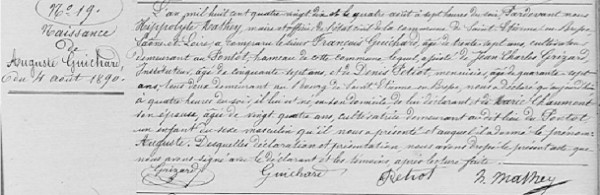 N° 19.
Naissance
de
Auguste Guichard,
du 4 août 1890.
L'an mil huit cent quatre vingt dix et le quatre août à sept heures du soir, Pardevant nous
Hippolyte Mathey, maire officier de l'état civil de la commune de Saint Etienne en Bresse
Saône et Loire, a comparu le sieur François Guichard, âgé de trente sept ans, cultivateur
demeurant au Pontot, hameau de cette commune, lequel assisté de Jean Charles
Instituteur, âgé de cinquante sept ans, et de Denis Petiot, menuisier, âgé de quarante sept
ans, tous deux demeurant au bourg de Saint Etienne en Bresse, nous a déclaré qu'aujourd'hui
à quatre heures du soir, il lui est né, en son domicile, de lui déclarant et de Marie Chaumont
son épouse, âgée de vingt quatre ans, cultivatrice demeurant au dit lieu du Pontot,
un enfant du sexe masculin qu'il nous a présenté et auquel il a donné le prénom
Auguste. Desquelles déclaration et présentation, nous avons dressé le présent acte que
nous avons signé avec le déclarant et les témoins après lecture faite.
Guichard Petiot H. Mathey